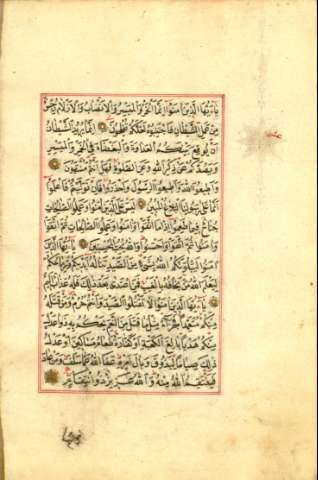 يَا أَيُّهَا الَّذِينَ آمَنُوا إِنَّمَا الْخَمْرُ وَالْمَيْسِرُ وَالْأَنْصَابُ وَالْأَزْلَامُ رِجْسٌ
مِنْ عَمَلِ الشَّيْطَانِ فَاجْتَنِبُوهُ لَعَلَّكُمْ تُفْلِحُونَ إِنَّمَا يُرِيدُ الشَّيْطَانُ
أَنْ يُوقِعَ بَيْنَكُمُ الْعَدَاوَةَ وَالْبَغْضَاءَ فِي الْخَمْرِ وَالْمَيْسِرِ
وَيَصُدَّكُمْ عَنْ ذِكْرِ اللَّهِ وَعَنِ الصَّلٰوةِ فَهَلْ أَنْتُمْ مُنْتَهُونَ
وَأَطِيعُوا اللَّهَ وَأَطِيعُوا الرَّسُولَ وَاحْذَرُوا فَإِنْ تَوَلَّيْتُمْ فَاعْلَمُوا
أَنَّمَا عَلَى رَسُولِنَا الْبَلَاغُ الْمُبِينُ لَيْسَ عَلَى الَّذِينَ آمَنُوا وَعَمِلُوا الصَّالِحَاتِ
جُنَاحٌ فِيمَا طَعِمُوا إِذَا مَا اتَّقَوْا وَآمَنُوا وَعَمِلُوا الصَّالِحَاتِ ثُمَّ اتَّقَوْا
وَآمَنُوا ثُمَّ اتَّقَوْا وَأَحْسَنُوا وَاللَّهُ يُحِبُّ الْمُحْسِنِينَ يَا أَيُّهَا الَّذِينَ
آمَنُوا لَيَبْلُوَنَّكُمُ اللَّهُ بِشَيْءٍ مِنَ الصَّيْدِ تَنَالُهُ أَيْدِيكُمْ وَرِمَاحُكُمْ
لِيَعْلَمَ اللَّهُ مَنْ يَخَافُهُ بِالْغَيْبِ فَمَنِ اعْتَدَى بَعْدَ ذَلِكَ فَلَهُ عَذَابٌ أَلِيمٌ
يَا أَيُّهَا الَّذِينَ آمَنُوا لَا تَقْتُلُوا الصَّيْدَ وَأَنْتُمْ حُرُمٌ وَمَنْ قَتَلَهُ
مِنْكُمْ مُتَعَمِّدًا فَجَزَاءٌ مِثْلُ مَا قَتَلَ مِنَ النَّعَمِ يَحْكُمُ بِهِ ذَوَا عَدْلٍ
مِنْكُمْ هَدْيًا بَالِغَ الْكَعْبَةِ أَوْ كَفَّارَةٌ طَعَامُ مَسَاكِينَ أَوْ عَدْلُ
ذَلِكَ صِيَامًا لِيَذُوقَ وَبَالَ أَمْرِهِ عَفَا اللَّهُ عَمَّا سَلَفَ وَمَنْ عَادَ
فَيَنْتَقِمُ اللَّهُ مِنْهُ وَاللَّهُ عَزِيزٌ ذُو انْتِقَامٍ